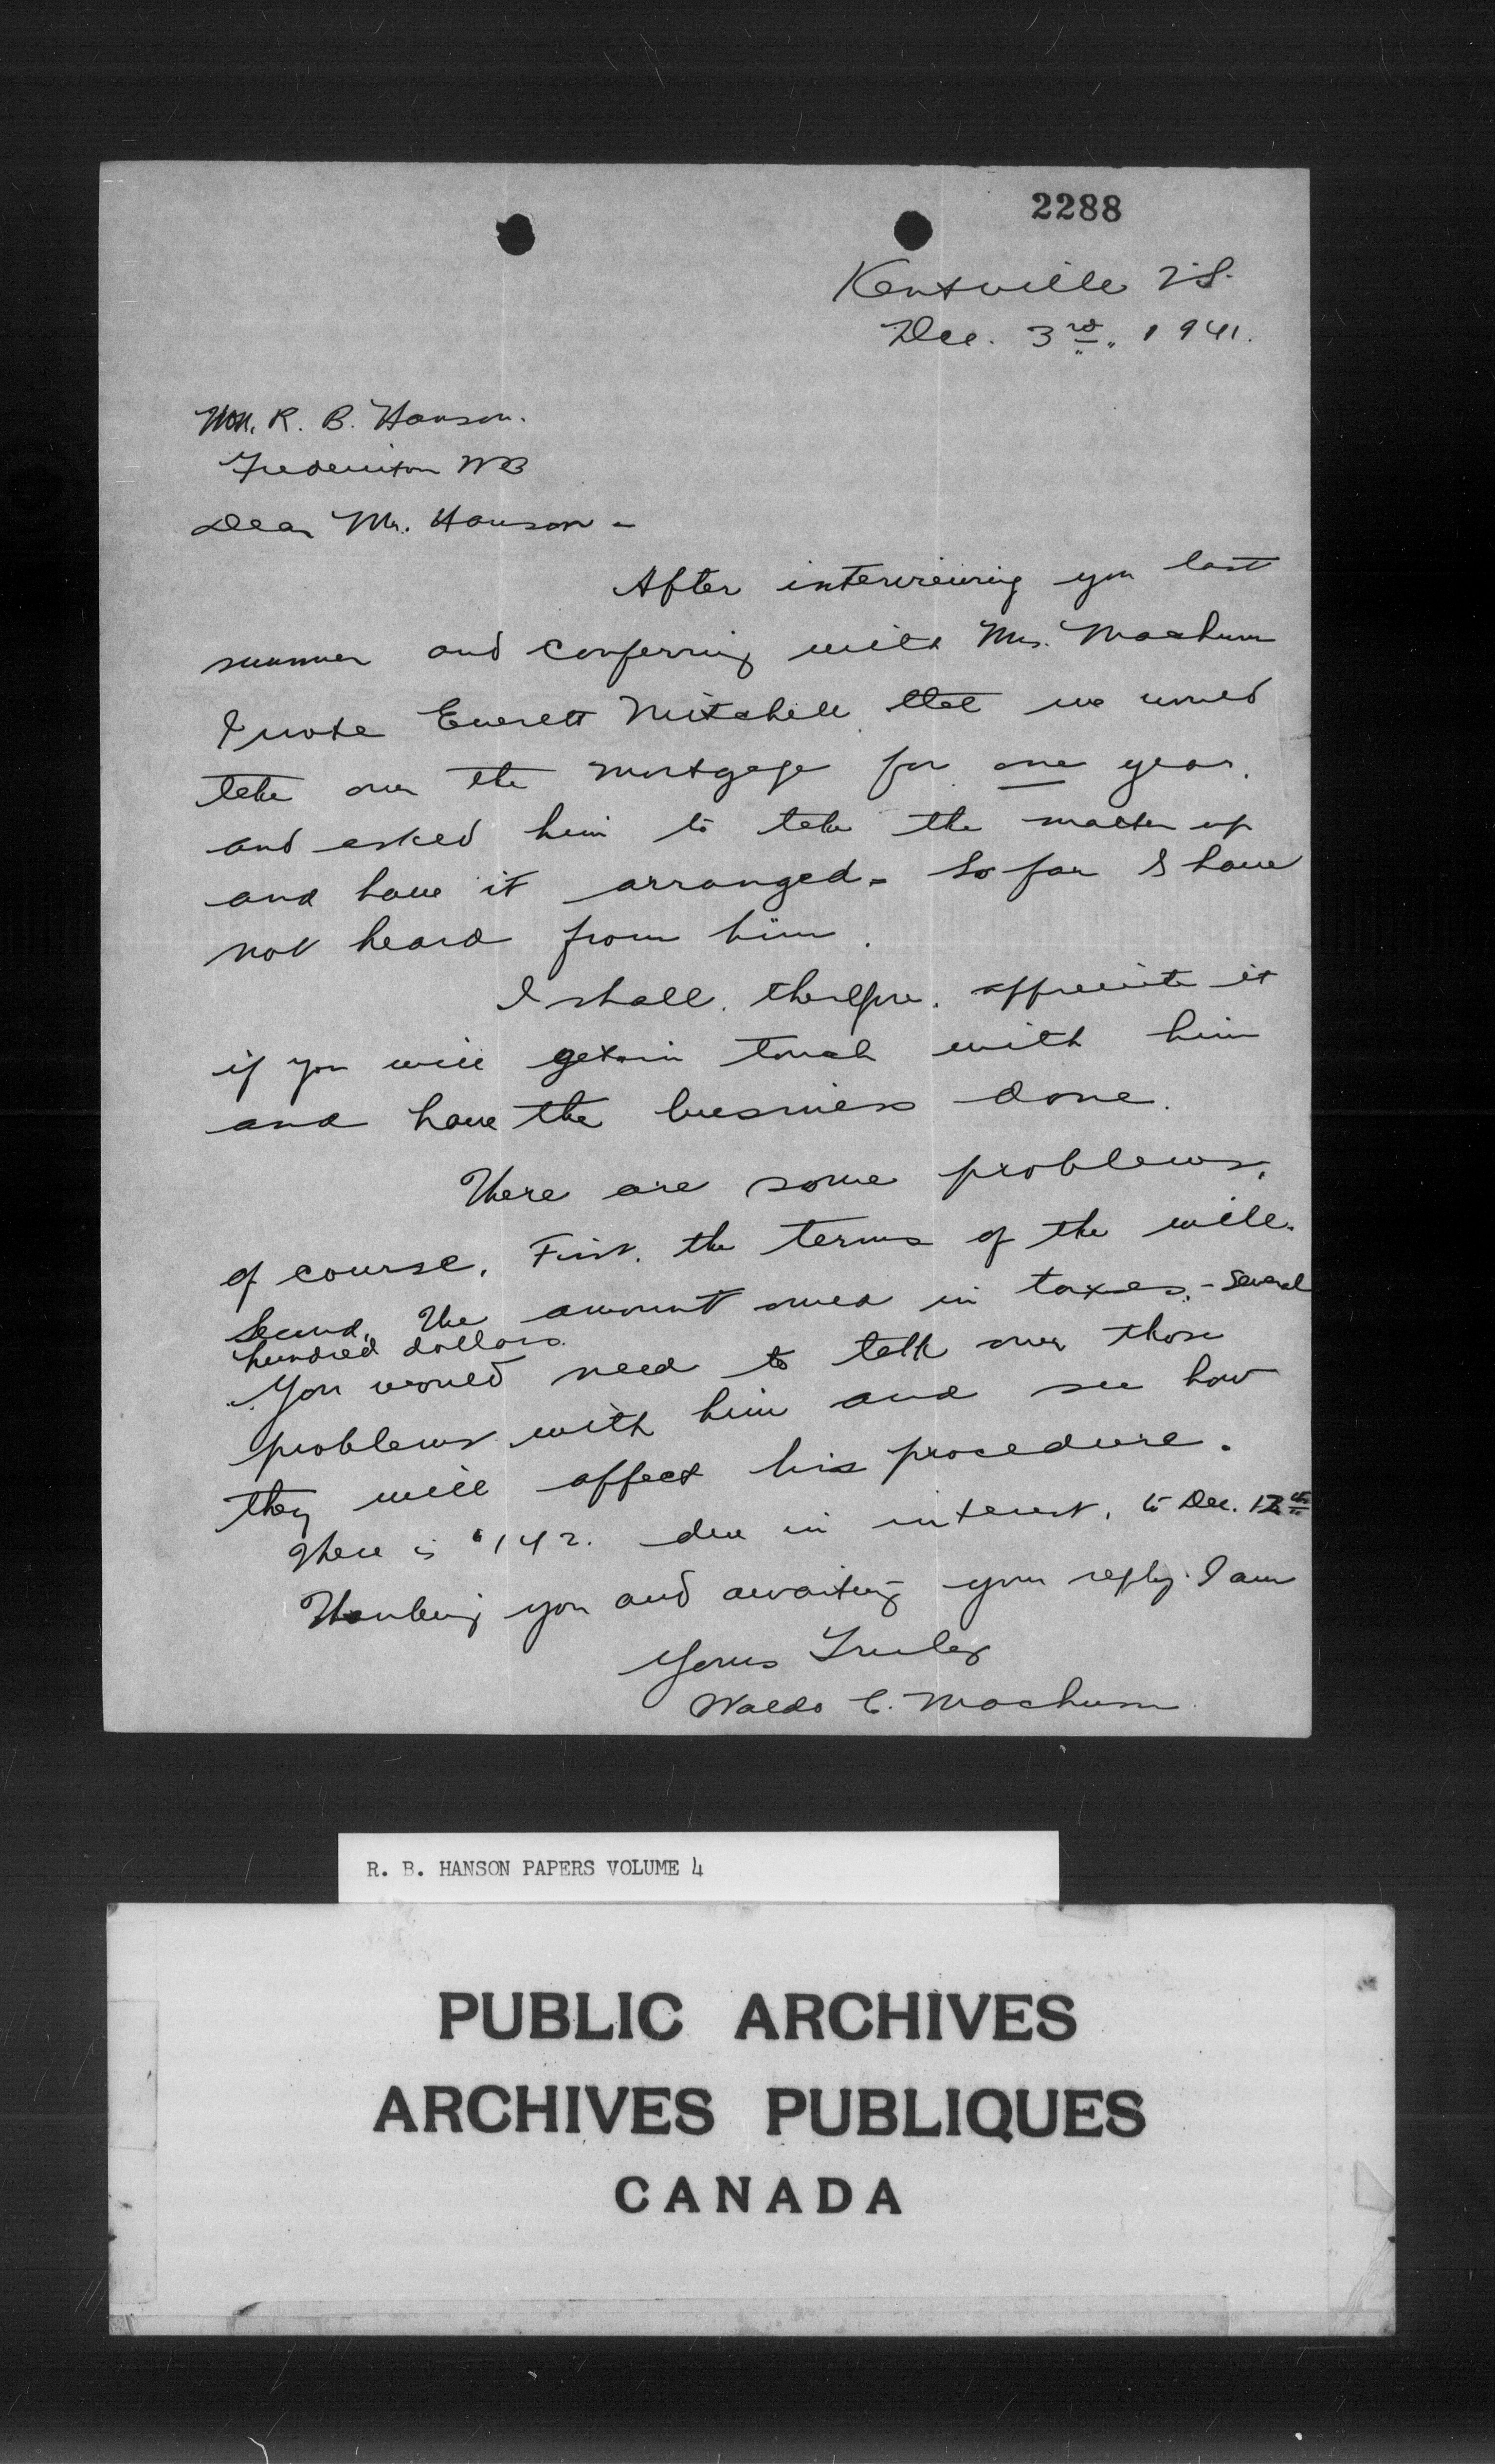 2288
Kentville N.S.
Dec. 3rd, 1941.
Hon. R. B. Hanson.
Fredericton NB
Dear Mr. Hanson -
After interviewing you last
summer and conferring with Mrs. Machum
I wrote Everett Mitchell that we would
take over the mortgage for one year.
and asked him to take the matter up
and have it arranged - So far I have
not heard from him.
I shall, therefore, appreciate it
if you will get in touch with him
and have the business done.
There are some problems,
of course. First, the terms of the will.
Second, the amount owed in taxes, - several
hundred dollars.
You would need to talk over those
problems with him and see how
they will affect his procedure.
There is $142. due in interest, to Dec. 12th
Thanking you and awaiting your reply. I am
Yours Truly
Waldo C. Machum
R. B. HANSON PAPERS VOLUME 4
PUBLIC ARCHIVES
ARCHIVES PUBLIQUES
CANADA